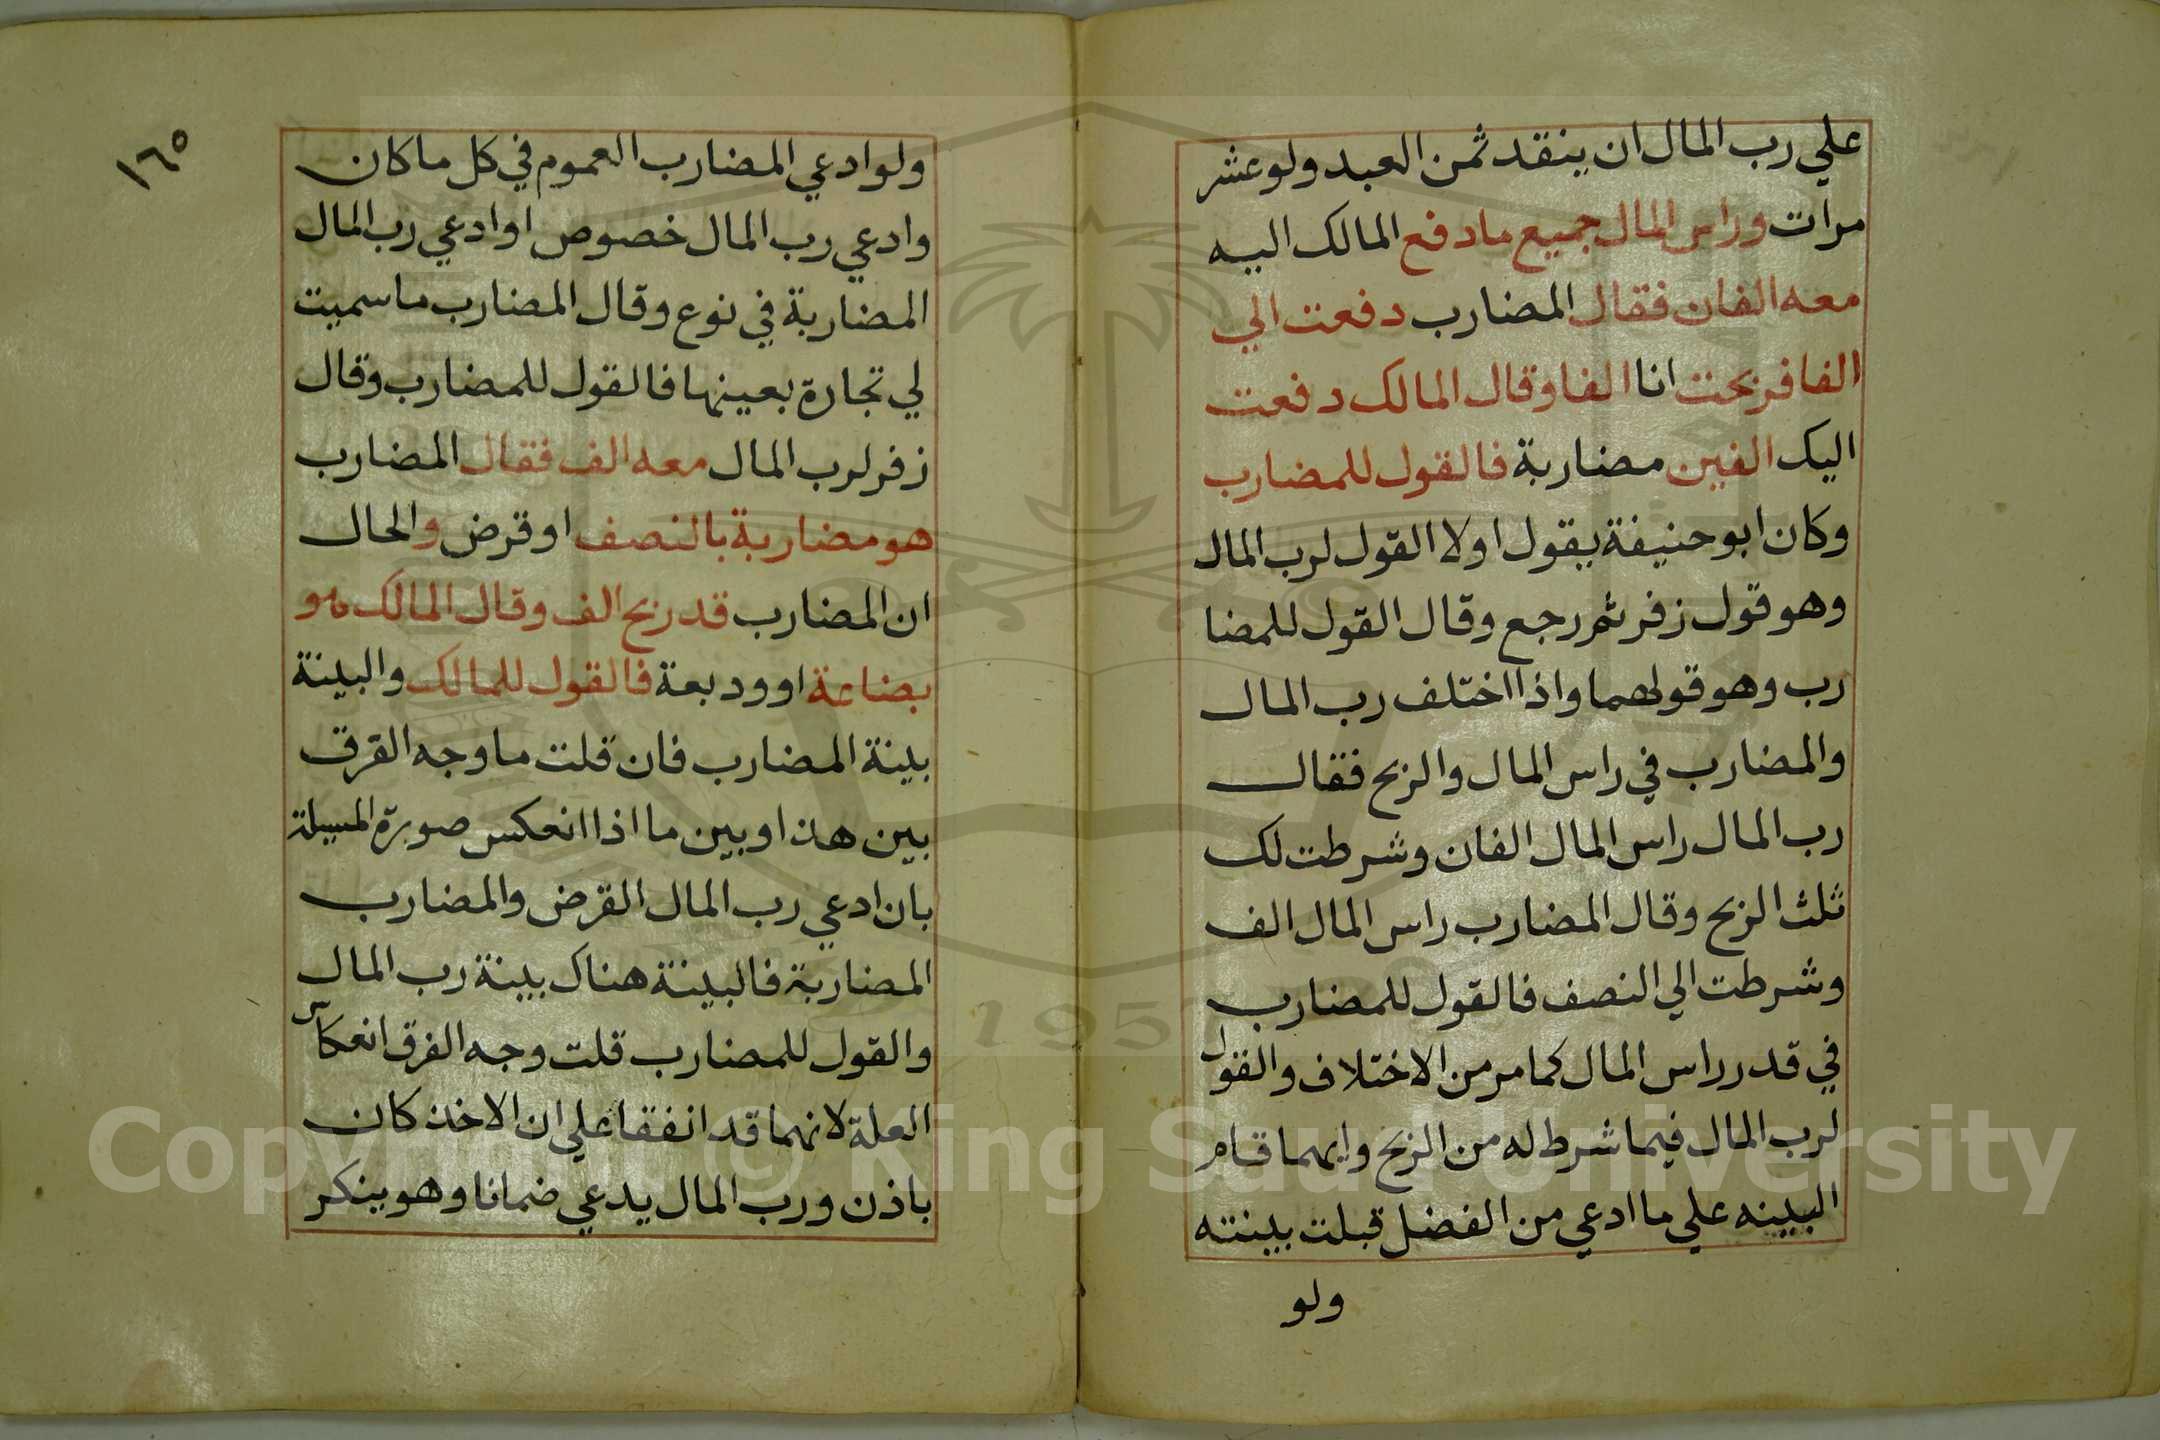 علي رب المال ان ينقد ثمن العبد ولو عشر
مرات وراس المال جميع ما دفع المالك اليه
معه الفان فقال المضارب دفعت الي
الفا فربحت انا الفا وقال المالك دفعت
اليك الفين مضاربة فالقول للمضارب
وكان ابو حنيفة يقول اولا القول لرب المال
وهو قول زفر ثم رجع وقال القول للمضا
رب وهو قولهما واذا اختلف رب المال
والمضارب في راس المال والربح فقال
رب المال راس المال الفان وشرطت لك
ثلث الربح وقال المضارب راس المال الف
وشرطت الي النصف فالقول للمضارب
في قدر راس المال كما مر من الاختلاف والقول
لرب المال فيما شرط له من الربح وايهما قام
البينه علي ما ادعي من الفضل قبلت بينته
ولو
١٦٥
ولو ادعي المضارب العموم في كل ما كان
وادعي رب المال خصوص او ادعي رب المال
المضاربة في نوع وقال المضارب ما سميت
لي تجارة بعينها فالقول للمضارب وقال
زفر لرب المال معه الف فقال المضارب
هو مضاربة بالنصف او قرض والحال
ان المضارب قد ربح الف وقال المالك هو
بضاعة او وديعة فالقول للمالك والبينة
بينة المضارب فان قلت ما وجه الفرق
بين هذا وبين ما اذا انعكس صورة المسيلة
بان ادعي رب المال القرض والمضارب
المضاربة فالبينة هناك بينة رب المال
والقول للمضارب قلت وجه الفرق انعكاس
العلة لانهما قد اتفقا علي ان الاخذ كان
باذن ورب المال يدعي ضمانا وهو ينكر
Copyright © King Saud University
1957